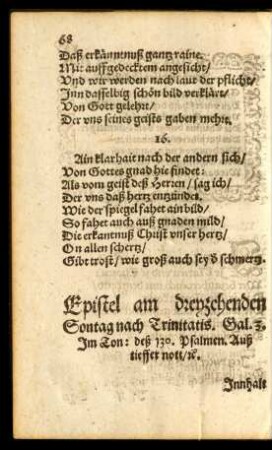 68
Daß erkänntnuß gantz raine.
Mit auffgedecktem angesicht/
Vnd wir werden nach laut der pflicht/
Inn dasselbig schön bild verklärt/
Von Gott gelehrt/
Der vns seines geists gaben mehrt.
16.
Ain klarhait nach der andern sich/
Von Gottes gnad hie findet:
Als vom geist deß Herren/ sag ich/
Der vns daß hertz entzündet.
Wie der spiegel fahet ain bild/
So fahet auch auß gnaden mild/
Die erkantnuß Christ vnser hertz/
On allen schertz/
Gibt trost/ wie groß auch sey d schmertz.
Epistel am dreyzehenden
Sontag nach Trinitatis. Gal. 3.
Im Ton: deß 130. Psalmen. Auß
tieffer nott/ ꝛc.
Innhalt